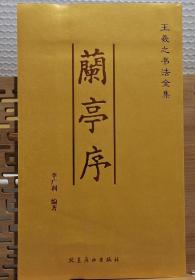 王羲之书法全集
蘭亭序
李广利 编著
北京燕山出版社